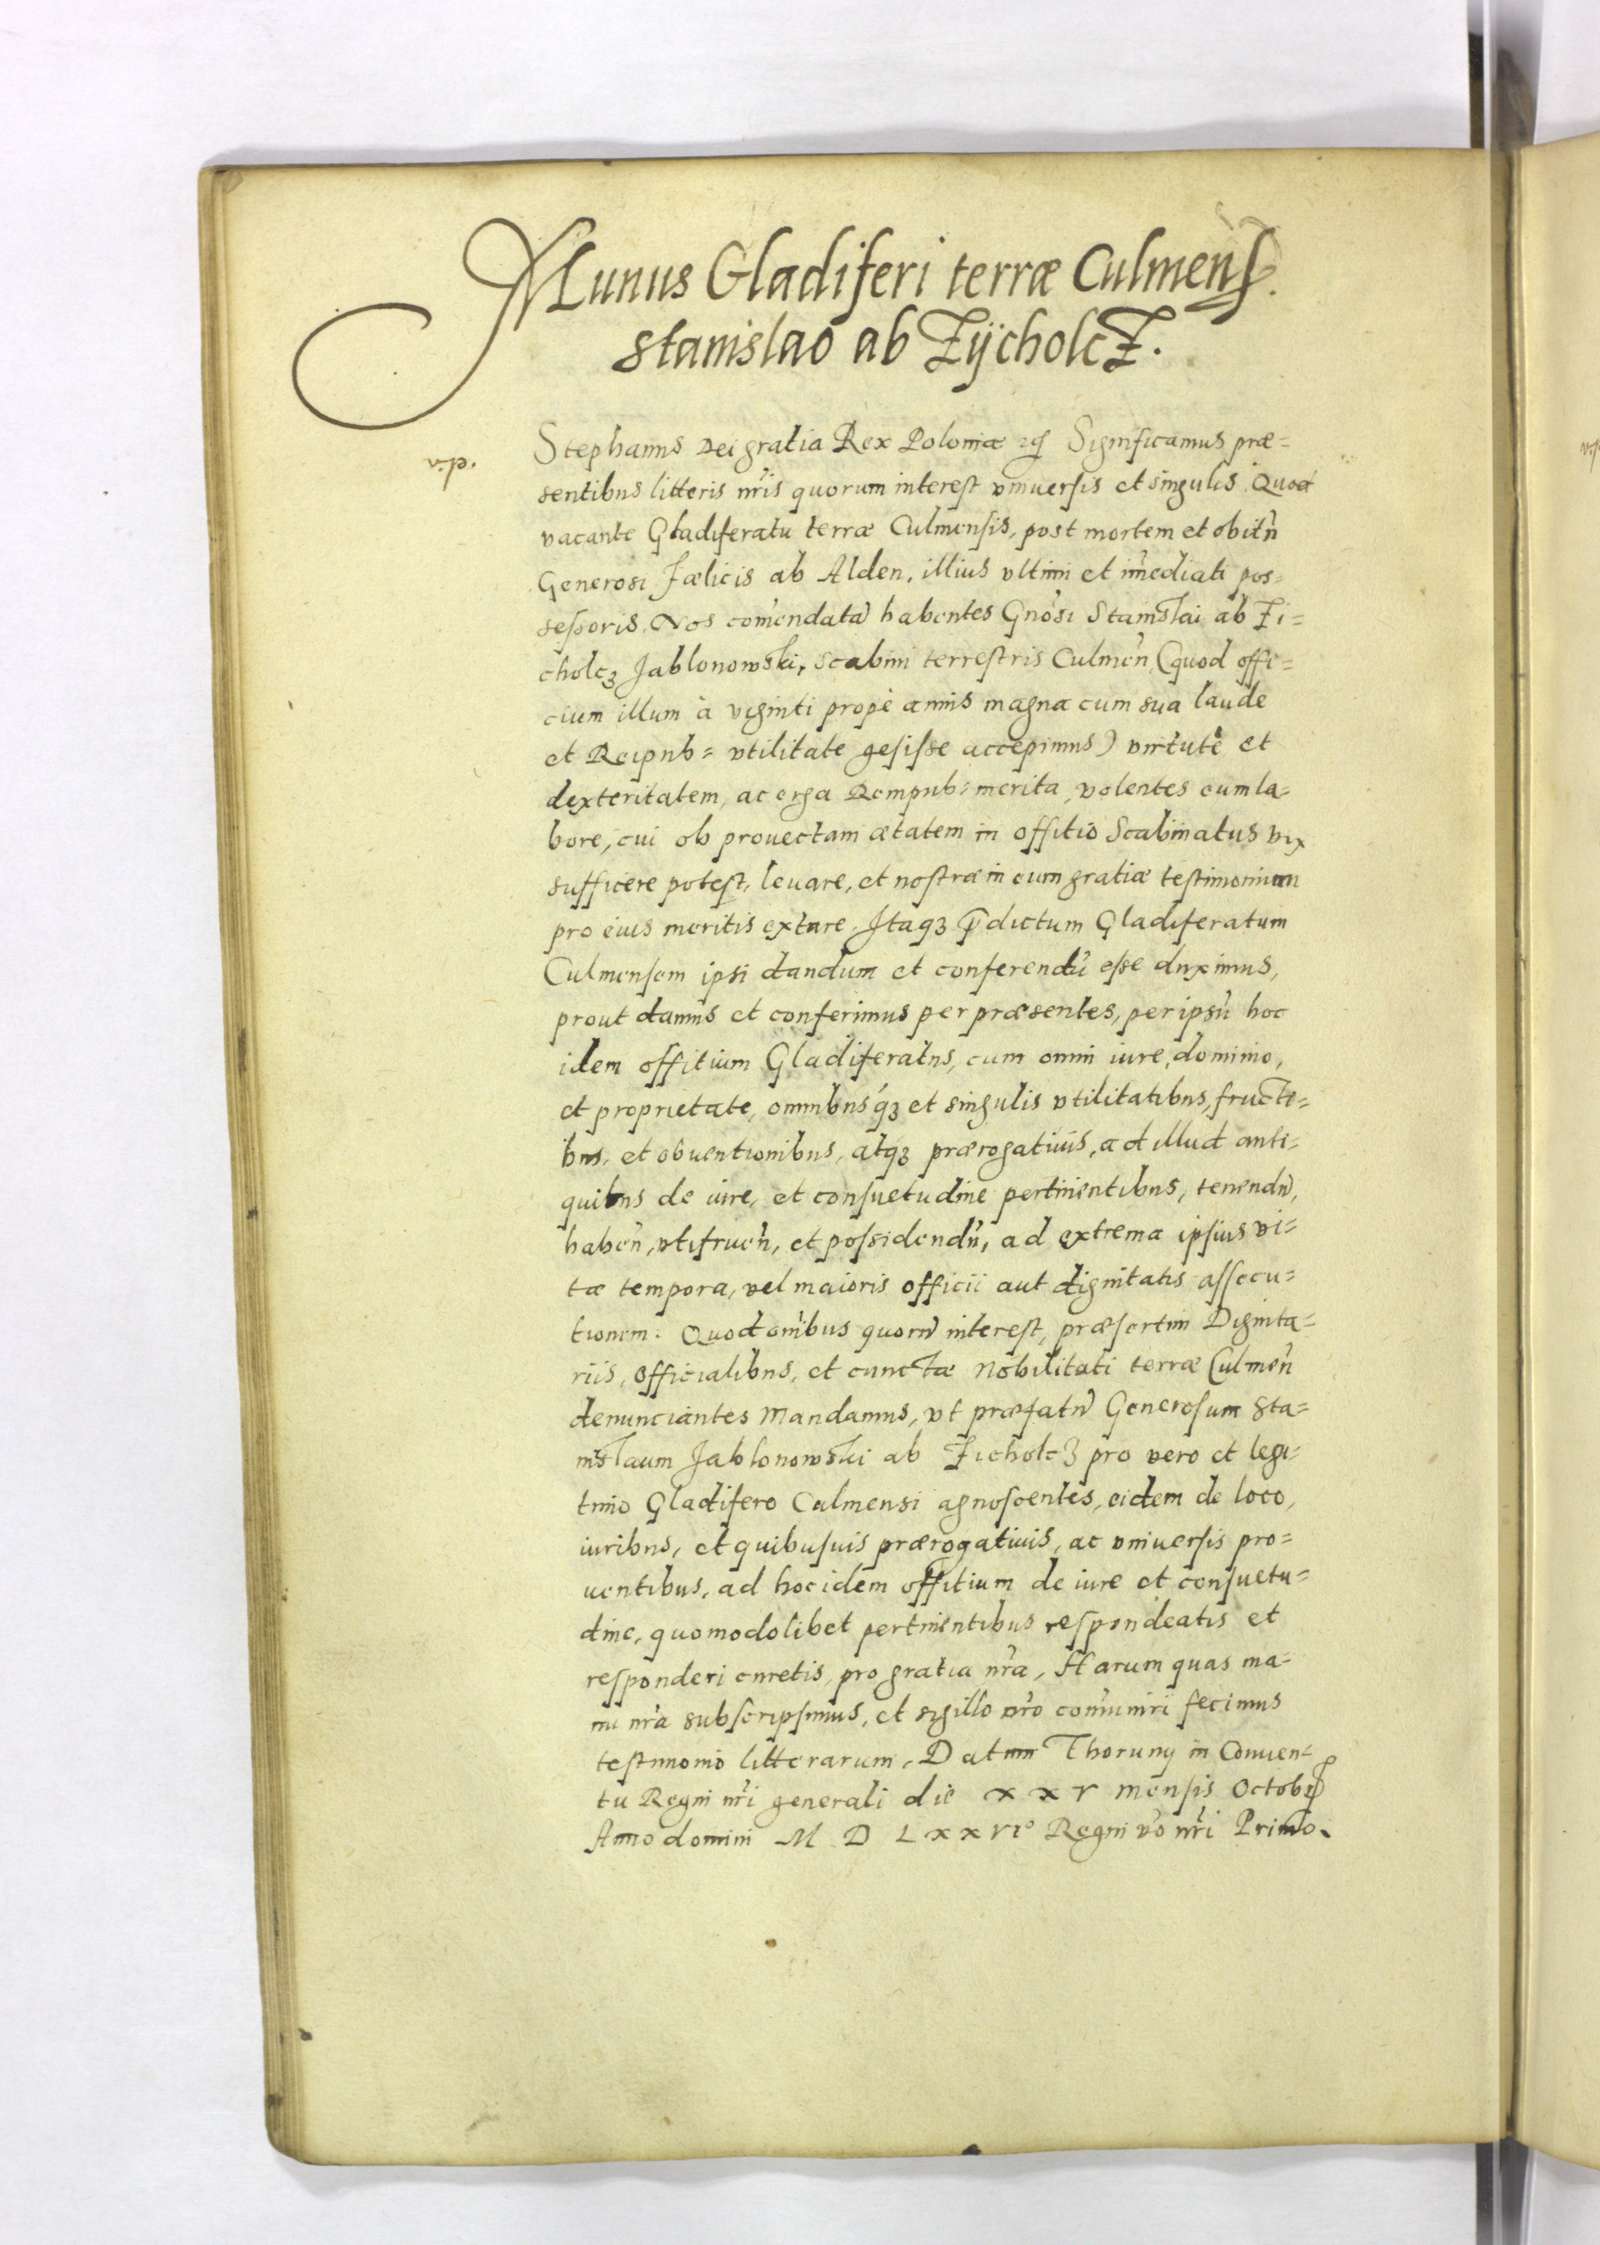 Munus Gladiferi terræ Culmens.
Stanislao ab Zÿcholcz.
Stephanus Dei gratia Rex Poloniæ Significamus præ=
sentibus litteris nr̃is quorum interest vniuersis et singulis. Quod
vacante Gladiferatu terræ Culmensis, post mortem et obitũ
Generosi Fælicis ab Alden, illius vltimi et im̃ediati pos=
sessoris. Nos com̃endatã habentes Gnõsi Stanislai ab Zi=
cholcz Jablonowski, scabini terrestris Culmeñ (quod offi=
cium illum à viginti propè annis magna cum sua laude
et Reipub= vtilitate gesisse accepimus) virtutẽ et
dexteritatem, ac erga Rempub: merita, volentes eum la=
bore, cui ob prouectam ætatem in offitio Scabinatus vix
sufficere potest, leuare, et nostræ in eum gratiæ testimonium
pro eius meritis extare. Itaqȝ p̃dictum Gladiferatum
Culmensem ipsi dandum et conferendũ esse duximus,
prout damus et conferimus per præsentes, per ipsũ hoc
idem offitium Gladiferatus, cum omni iure, dominio,
et proprietate, omnibusqȝ et singulis vtilitatibus, fructi=
bus, et obuentionibus, atqȝ prærogatiuis, ad illud anti=
quitus de iure, et consuetudine pertinentibus, tenendũ,
habeñ, vtifrueñ, et possidendũ, ad extrema ipsius vi=
tæ tempora, vel maioris officii aut dignitatis assecu=
tionem. Quod om̃ibus quorũ interest, præsertim Dignita=
riis, officialibus, et cunctæ Nobilitati terræ Culmeñ
denunciantes Mandamus, vt præfatũ Generosum Sta=
nislaum Jablonowski ab Zicholcȝ pro vero et legi=
timo Gladifero Culmensi agnoscentes, eidem de loco,
iuribus, et quibusuis prærogatiuis, ac vniuersis pro=
uentibus, ad hoc idem offitium de iure et consuetu=
dine, quomodolibet pertinentibus respondeatis et
responderi curetis, pro gratia nr̃a, Harum quas ma=
nu nr̃a subscripsimus, et sigillo nr̃o com̃uniri fecimus
testimonio litterarum. Datum Thoruny in Conuen=
tu Regni nr̃i generali die XXV mensis Octobr̃
Anno domini M D LXXVI° Regni võ nr̃i Primo.